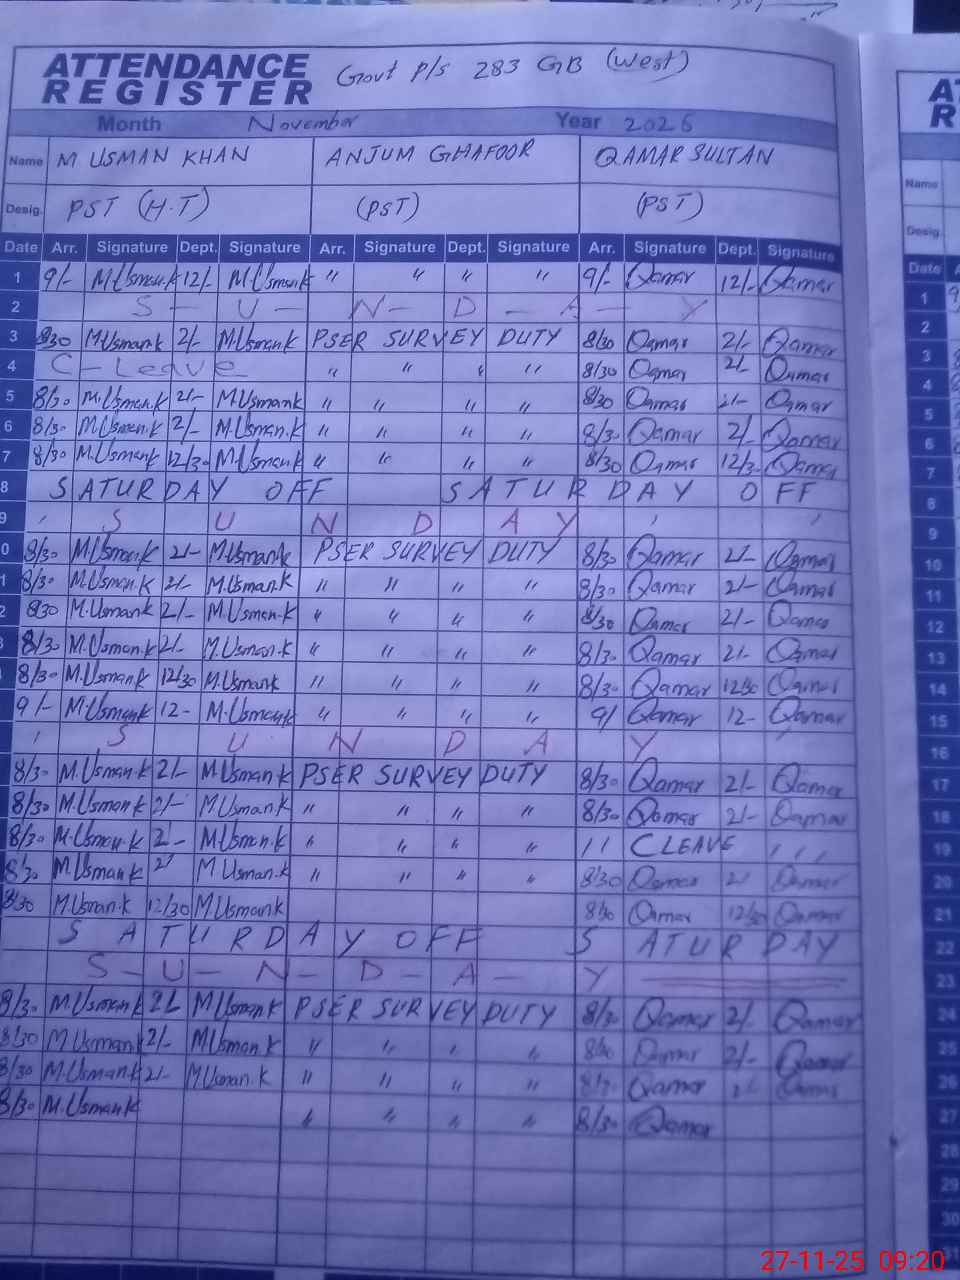 ATTENDANCE REGISTER Govt P/S 283 GB (West)
Month November Year 2025
Name M USMAN KHAN ANJUM GHAFOOR QAMAR SULTAN
Desig. PST (H.T) (PST) (PST)
Date Arr. Signature Dept. Signature Arr. Signature Dept. Signature Arr. Signature Dept. Signature
1 9/- M.Usman.K 12/- M.Usman.K " " " " 9/- Qamar 12/- Qamar
2 S - U - N - D - A - Y
3 8/30 M.Usman.K 2/- M.Usman.K PSER SURVEY DUTY 8/30 Qamar 2/- Qamar
4 C-Leave " " " " 8/30 Qamar 2/- Qamar
5 8/30 M.Usman.K 2/- M.Usman.K " " " " 8/30 Qamar 2/- Qamar
6 8/30 M.Usman.K 2/- M.Usman.K " " " " 8/30 Qamar 2/- Qamar
7 8/30 M.Usman.K 12/30 M.Usman.K " " " " 8/30 Qamar 12/30 Qamar
8 SATURDAY OFF SATURDAY OFF
9 S U N D A Y
0 8/30 M.Usman.K 2/- M.Usman.K PSER SURVEY DUTY 8/30 Qamar 2/- Qamar
1 8/30 M.Usman.K 2/- M.Usman.K " " " " 8/30 Qamar 2/- Qamar
2 8/30 M.Usman.K 2/- M.Usman.K " " " " 8/30 Qamar 2/- Qamar
8/30 M.Usman.K 2/- M.Usman.K " " " " 8/30 Qamar 2/- Qamar
8/30 M.Usman.K 12/30 M.Usman.K " " " " 8/30 Qamar 12/30 Qamar
9/- M.Usman.K 12- M.Usman.K " " " " 9/ Qamar 12- Qamar
S U N D A Y
8/30 M.Usman.K 2/- M.Usman.K PSER SURVEY DUTY 8/30 Qamar 2/- Qamar
8/30 M.Usman.K 2/- M.Usman.K " " " " 8/30 Qamar 2/- Qamar
8/30 M.Usman.K 2/- M.Usman.K " " " " 11 CLEAVE , , ,
8/30 M.Usman.K 2/ M.Usman.K " " " " 8/30 Qamar 2/ Qamar
8/30 M.Usman.K 12/30 M.Usman.K 8/30 Qamar 12/30 Qamar
SATURDAY OFF SATURDAY
S - U - N - D - A - Y
8/30 M.Usman.K 2/- M.Usman.K PSER SURVEY DUTY 8/30 Qamar 2/- Qamar
8/30 M.Usman.K 2/- M.Usman.K " " " " 8/30 Qamar 2/- Qamar
8/30 M.Usman.K 2/- M.Usman.K " " " " 8/30 Qamar 2/- Qamar
8/30 M.Usman.K " " " " 8/30 Qamar
AT
R
Name
Desig.
Date A
1
2
3
4
5
6
7
8
9
10
11
12
13
14
15
16
17
18
19
20
21
22
23
24
25
26
27
28
29
30
31
27-11-25 09:20